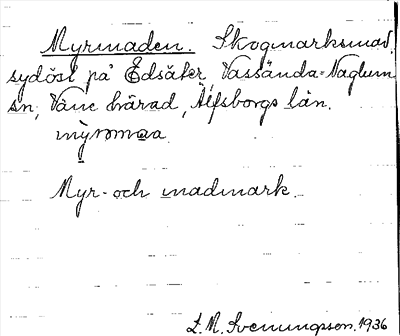 Myrmaden. Skogmarksmad,
sydöst på Edsäker, Vassända-Naglum
sn, Väne härad, Älfsborgs län.
Myr- och madmark.
L. M. Svenungsson. 1936